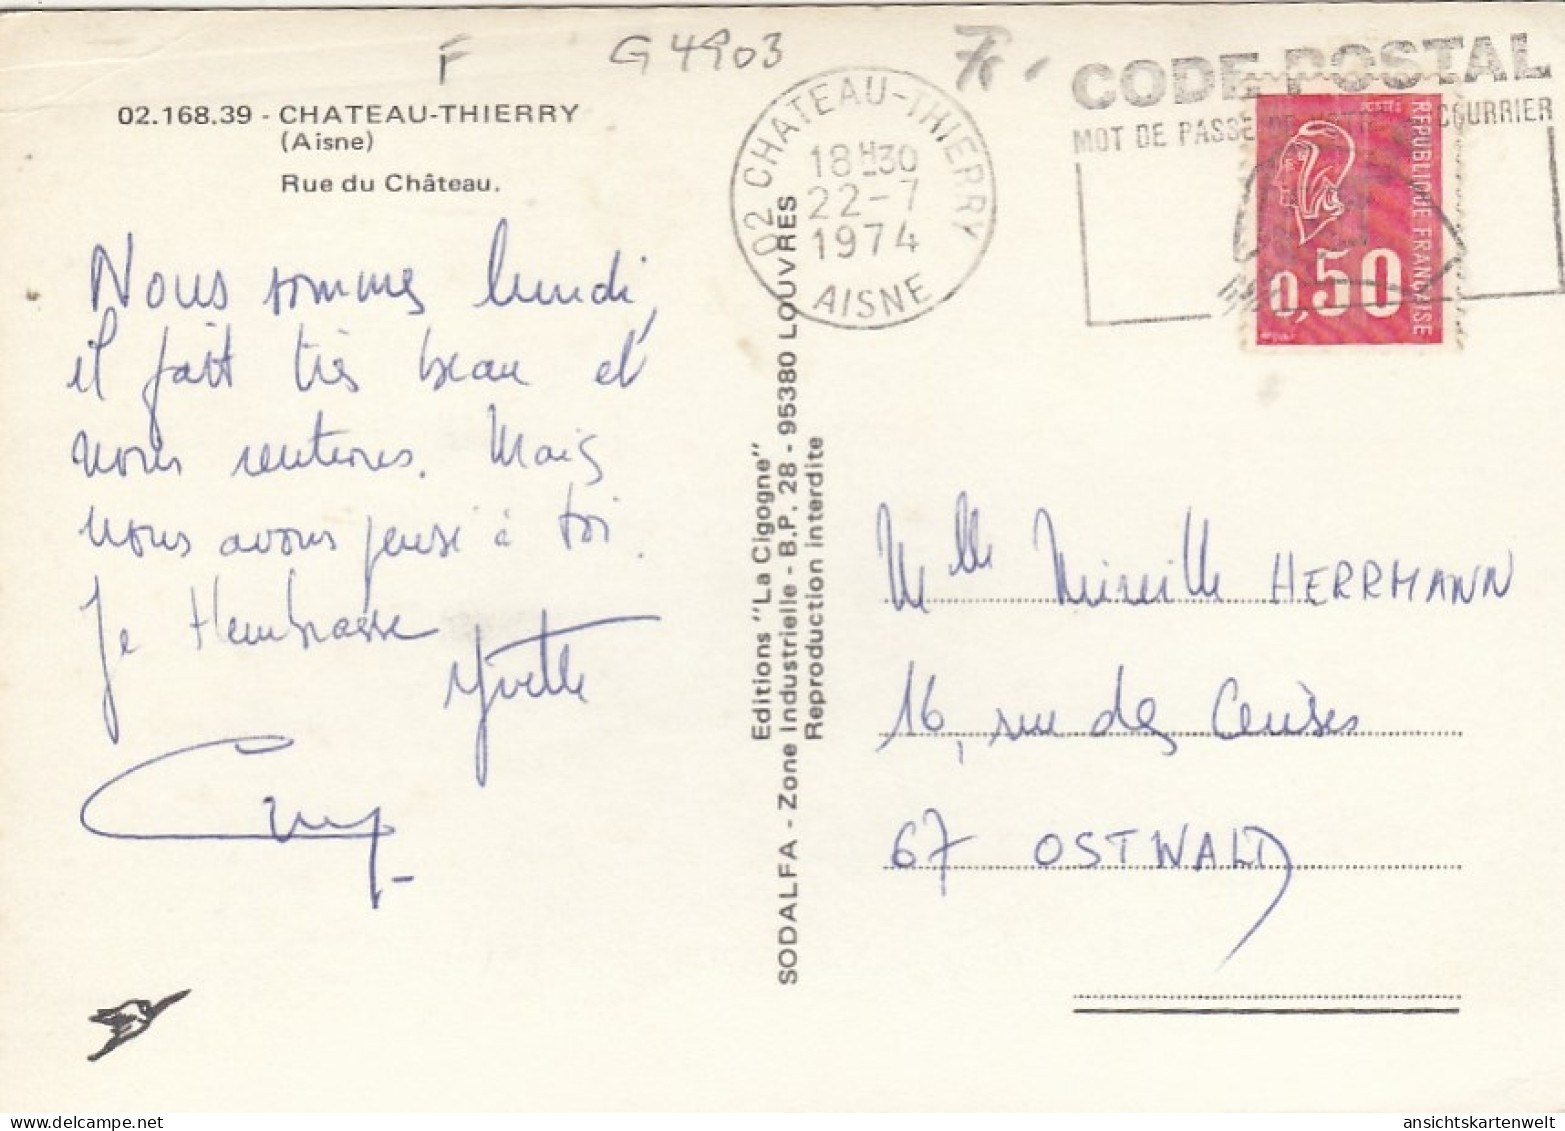 F
G 4903
02.168.39 - CHATEAU-THIERRY
(Aisne)
Rue du Château.
Nous sommes lundi,
il fait très beau et
nous rentrons. Mais
nous avons pensé à toi.
Je t'embrasse
Yvette
Editions "La Cigogne"
SODALFA - Zone Industrielle - B.P. 28 - 95380 LOUVRES
Reproduction interdite
02 CHATEAU-THIERRY
18H30
22-7
1974
AISNE
CODE POSTAL
MOT DE PASSE DE VOTRE COURRIER
POSTES
REPUBLIQUE FRANÇAISE
0,50
Mlle Mireille HERRMANN
16, rue des Cerises
67 OSTWALD
© by ansichtskartenwelt.com
ansichtskartenwelt